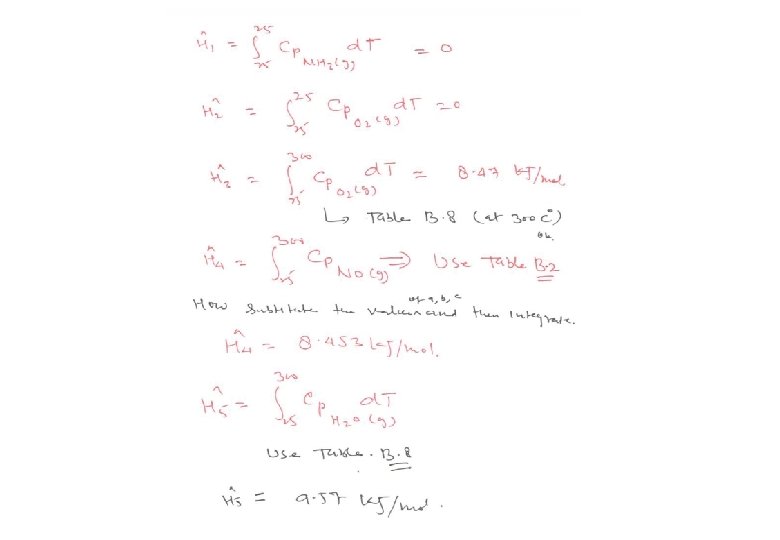 Ĥ₁ = ∫₂₅²⁵ Cp NH₃(g) dT = 0
Ĥ₂ = ∫₂₅²⁵ Cp O₂(g) dT = 0
Ĥ₃ = ∫₂₅³⁰⁰ Cp O₂(g) dT = 8.47 kJ/mol
↳ Table B.8 (at 300 C°)
Ĥ₄ = ∫₂₅³⁰⁰ Cp NO(g) ⇒ Use Table B.2
Now Substitute the values of a, b, c and then Integrate.
Ĥ₄ = 8.453 kJ/mol.
Ĥ₅ = ∫₂₅³⁰⁰ Cp H₂O(g) dT
Use Table. B.8
Ĥ₅ = 9.57 kJ/mol.